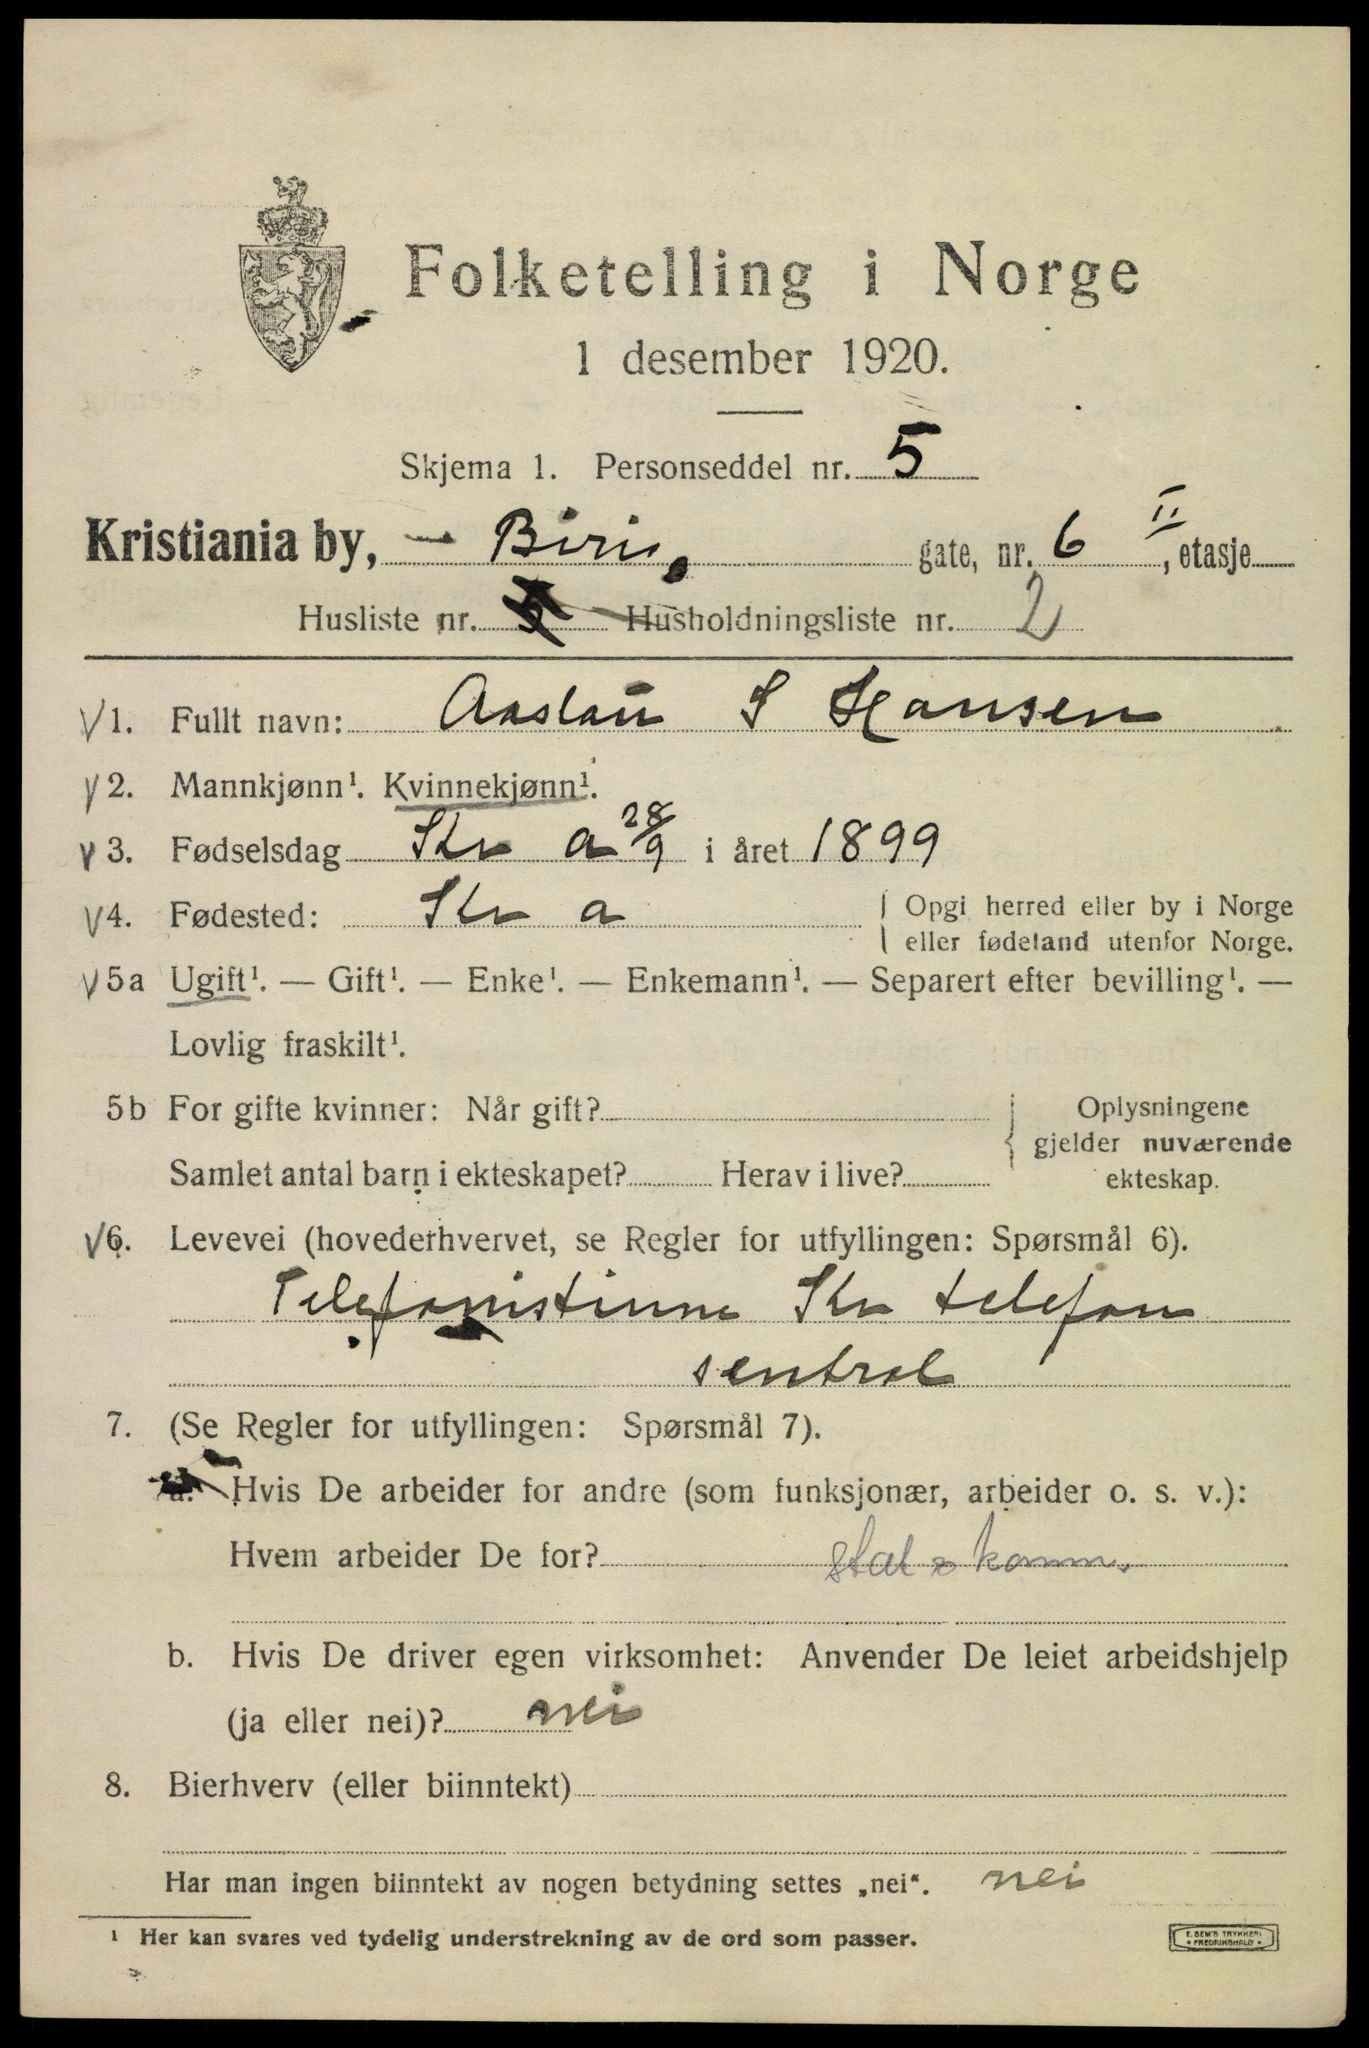 Folketelling i Norge
1 desember 1920.
Skjema 1. Personseddel nr. 5
Kristiania by, Biris gate, nr. 6 II, etasje
Husliste nr. Husholdningsliste nr. 2
1. Fullt navn: Aaslau S Hansen
2. Mannkjønn¹. Kvinnekjønn¹.
3. Fødselsdag Kr a 28/9 i året 1899
4. Fødested: Kr a { Opgi herred eller by i Norge
eller fødeland utenfor Norge.
5a Ugift¹. — Gift¹. — Enke¹. — Enkemann¹. — Separert efter bevilling¹. —
Lovlig fraskilt¹.
5b For gifte kvinner: Når gift? Oplysningene
gjelder nuværende
Samlet antal barn i ekteskapet? Herav i live? ekteskap.
6. Levevei (hovederhvervet, se Regler for utfyllingen: Spørsmål 6).
Telefonistinne Kr telefon
sentral
7. (Se Regler for utfyllingen: Spørsmål 7).
a. Hvis De arbeider for andre (som funksjonær, arbeider o. s. v.):
Hvem arbeider De for? stat & komm.
b. Hvis De driver egen virksomhet: Anvender De leiet arbeidshjelp
(ja eller nei)? nei
8. Bierhverv (eller biinntekt)
Har man ingen biinntekt av nogen betydning settes „nei“. nei
¹ Her kan svares ved tydelig understrekning av de ord som passer.
E. SEM'S TRYKKERI
FREDRIKSHALD